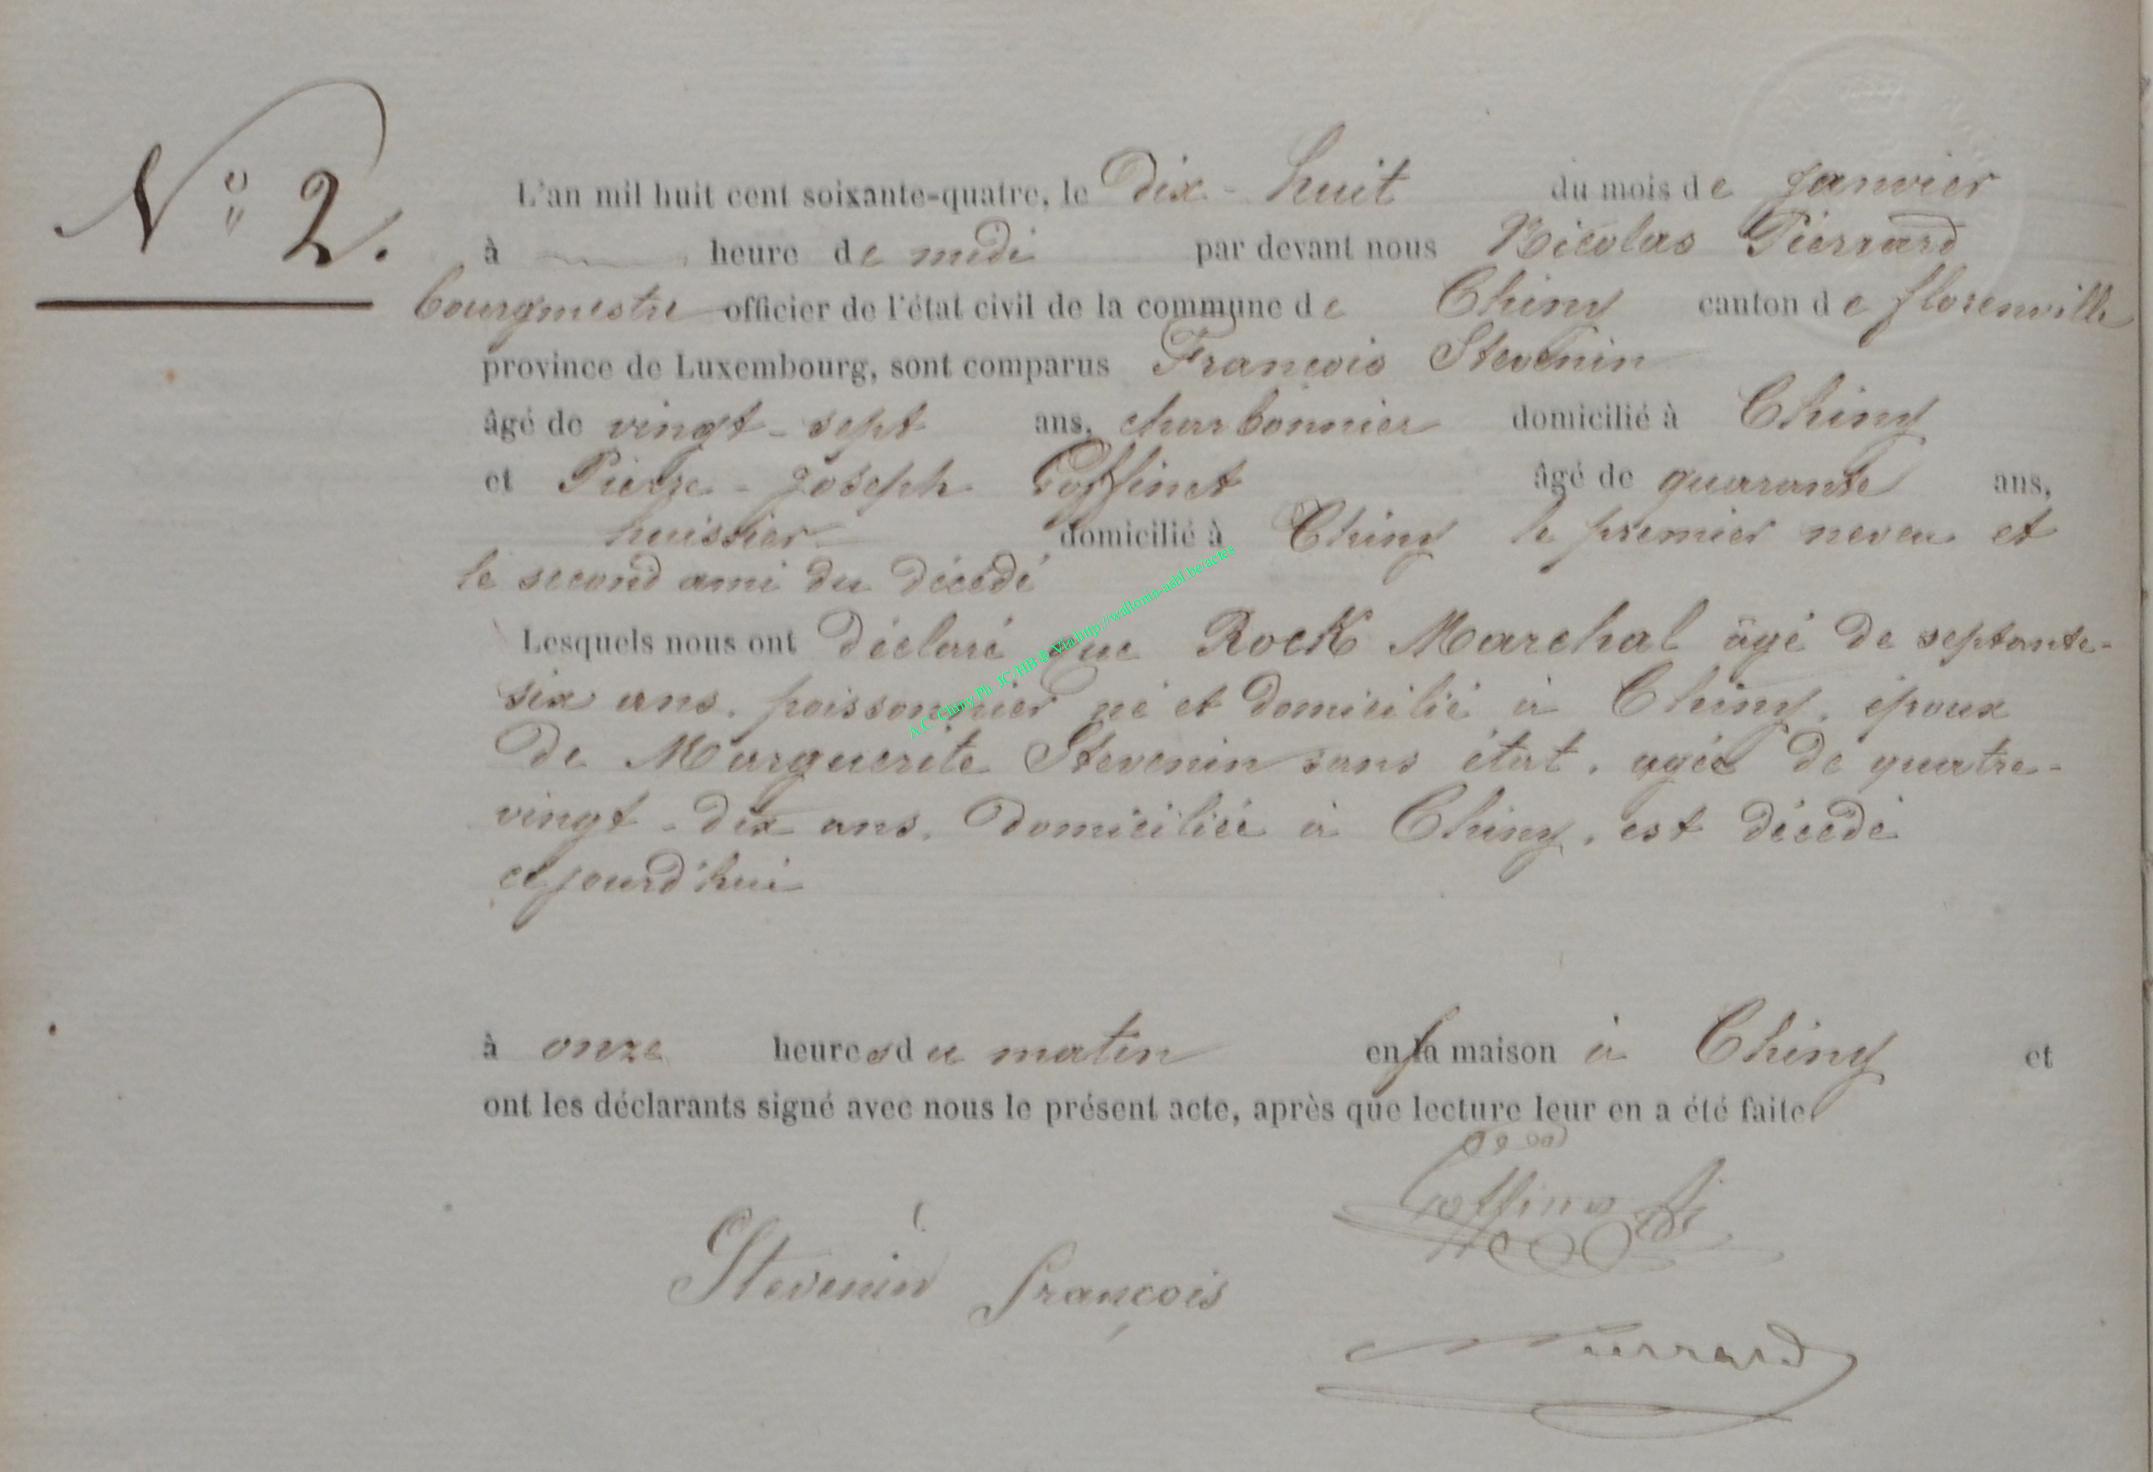 N° 2.
L'an mil huit cent soixante-quatre, le Dix-huit du mois de janvier
à heure de midi par devant nous Nicolas Pierrard
bourgmestre officier de l'état civil de la commune de Chiny canton de florenville
province de Luxembourg, sont comparus François Stevenin
âgé de vingt-sept ans, charbonnier domicilié à Chiny
et Pierre-joseph Goffinet âgé de quarante ans,
huissier domicilié à Chiny le premier neveu et
le second ami du décédé
Lesquels nous ont Déclaré que Rock Marchal âgé de septante-
six ans, poissonnier né et domicilié à Chiny, époux
De Marguerite Stevenin sans état, agée de quatre-
vingt-dix ans, Domiciliée à Chiny, est décédé
cejourd'hui
à onze heures du matin en sa maison à Chiny et
ont les déclarants signé avec nous le présent acte, après que lecture leur en a été faite
Stevenin françois
Pierrard
A.C. Chiny Ph. JC/HB & Via http://wdjloma-asbl.be/actes